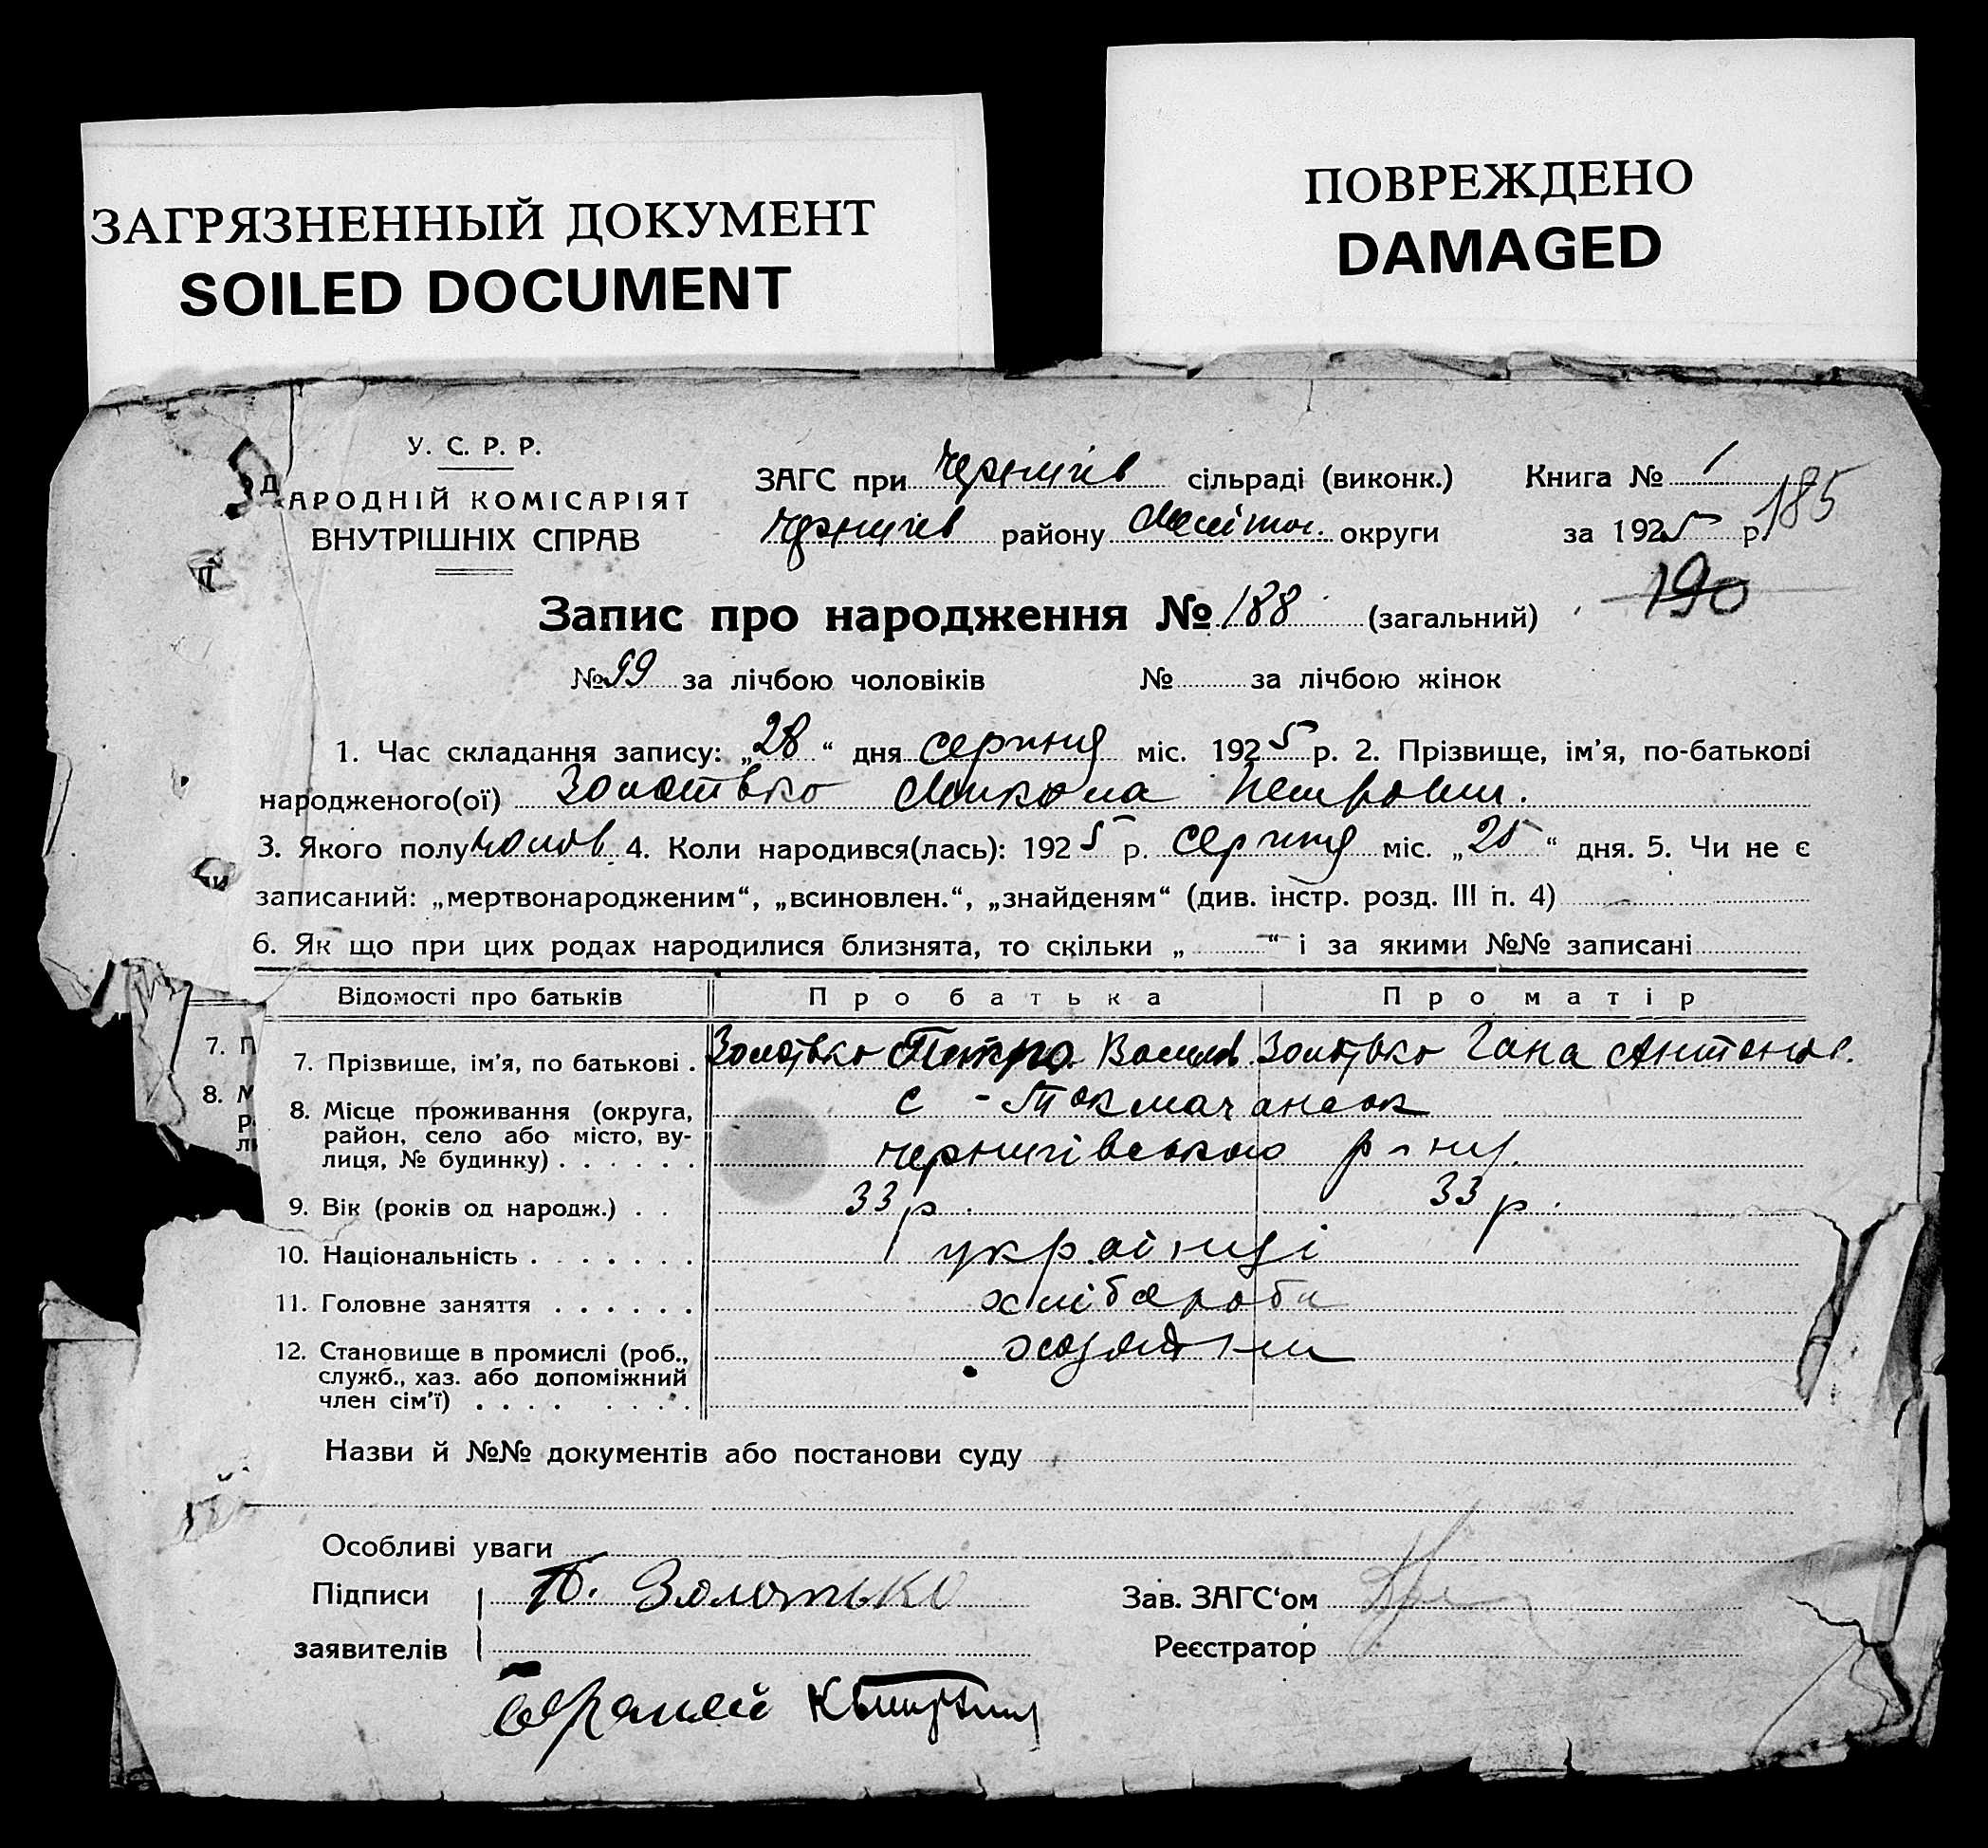 ЗАГРЯЗНЕННЫЙ ДОКУМЕНТ
SOILED DOCUMENT
ПОВРЕЖДЕНО
DAMAGED
У. С. Р. Р.
АРОДНІЙ КОМІСАРІЯТ
ВНУТРІШНІХ СПРАВ
ЗАГС при Чернигів сільраді (виконк.)
Чернигів району Меліт. округи
Книга № 1
185
за 1925 р.
190
Запис про народження № 188 (загальний)
№ 99 за лічбою чоловіків № за лічбою жінок
1. Час складання запису: „28“ дня серпня міс. 1925 р. 2. Прізвище, ім'я, по-батькові
народженого(ої) Золотько Микола Петрович.
3. Якого полу чолов. 4. Коли народився(лась): 1925 р. серпня міс. „25“ дня. 5. Чи не є
записаний: „мертвонародженим“, „всиновлен.“, „знайденям“ (див. інстр. розд. III п. 4)
6. Як що при цих родах народилися близнята, то скільки „ “ і за якими №№ записані
Відомості про батьків Про батька Про матір
7. Прізвище, ім'я, по батькові . Золотько Петро Васильов. Золотько Гана Антонов.
8. Місце проживання (округа, с - Токмачанськ
район, село або місто, ву-
лиця, № будинку) . . . . . . чернигівського р-ну.
9. Вік (років од народж.) . . 33 р. 33 р.
10. Національність . . . . . . . українці
11. Головне заняття . . . . . . хлібороби
12. Становище в промислі (роб.,
служб., хаз. або допоміжний
член сім'ї) . . . . . . . .
Назви й №№ документів або постанови суду
Особливі уваги
Підписи П. Золотько Зав. ЗАГС'ом
заявителів Реєстратор